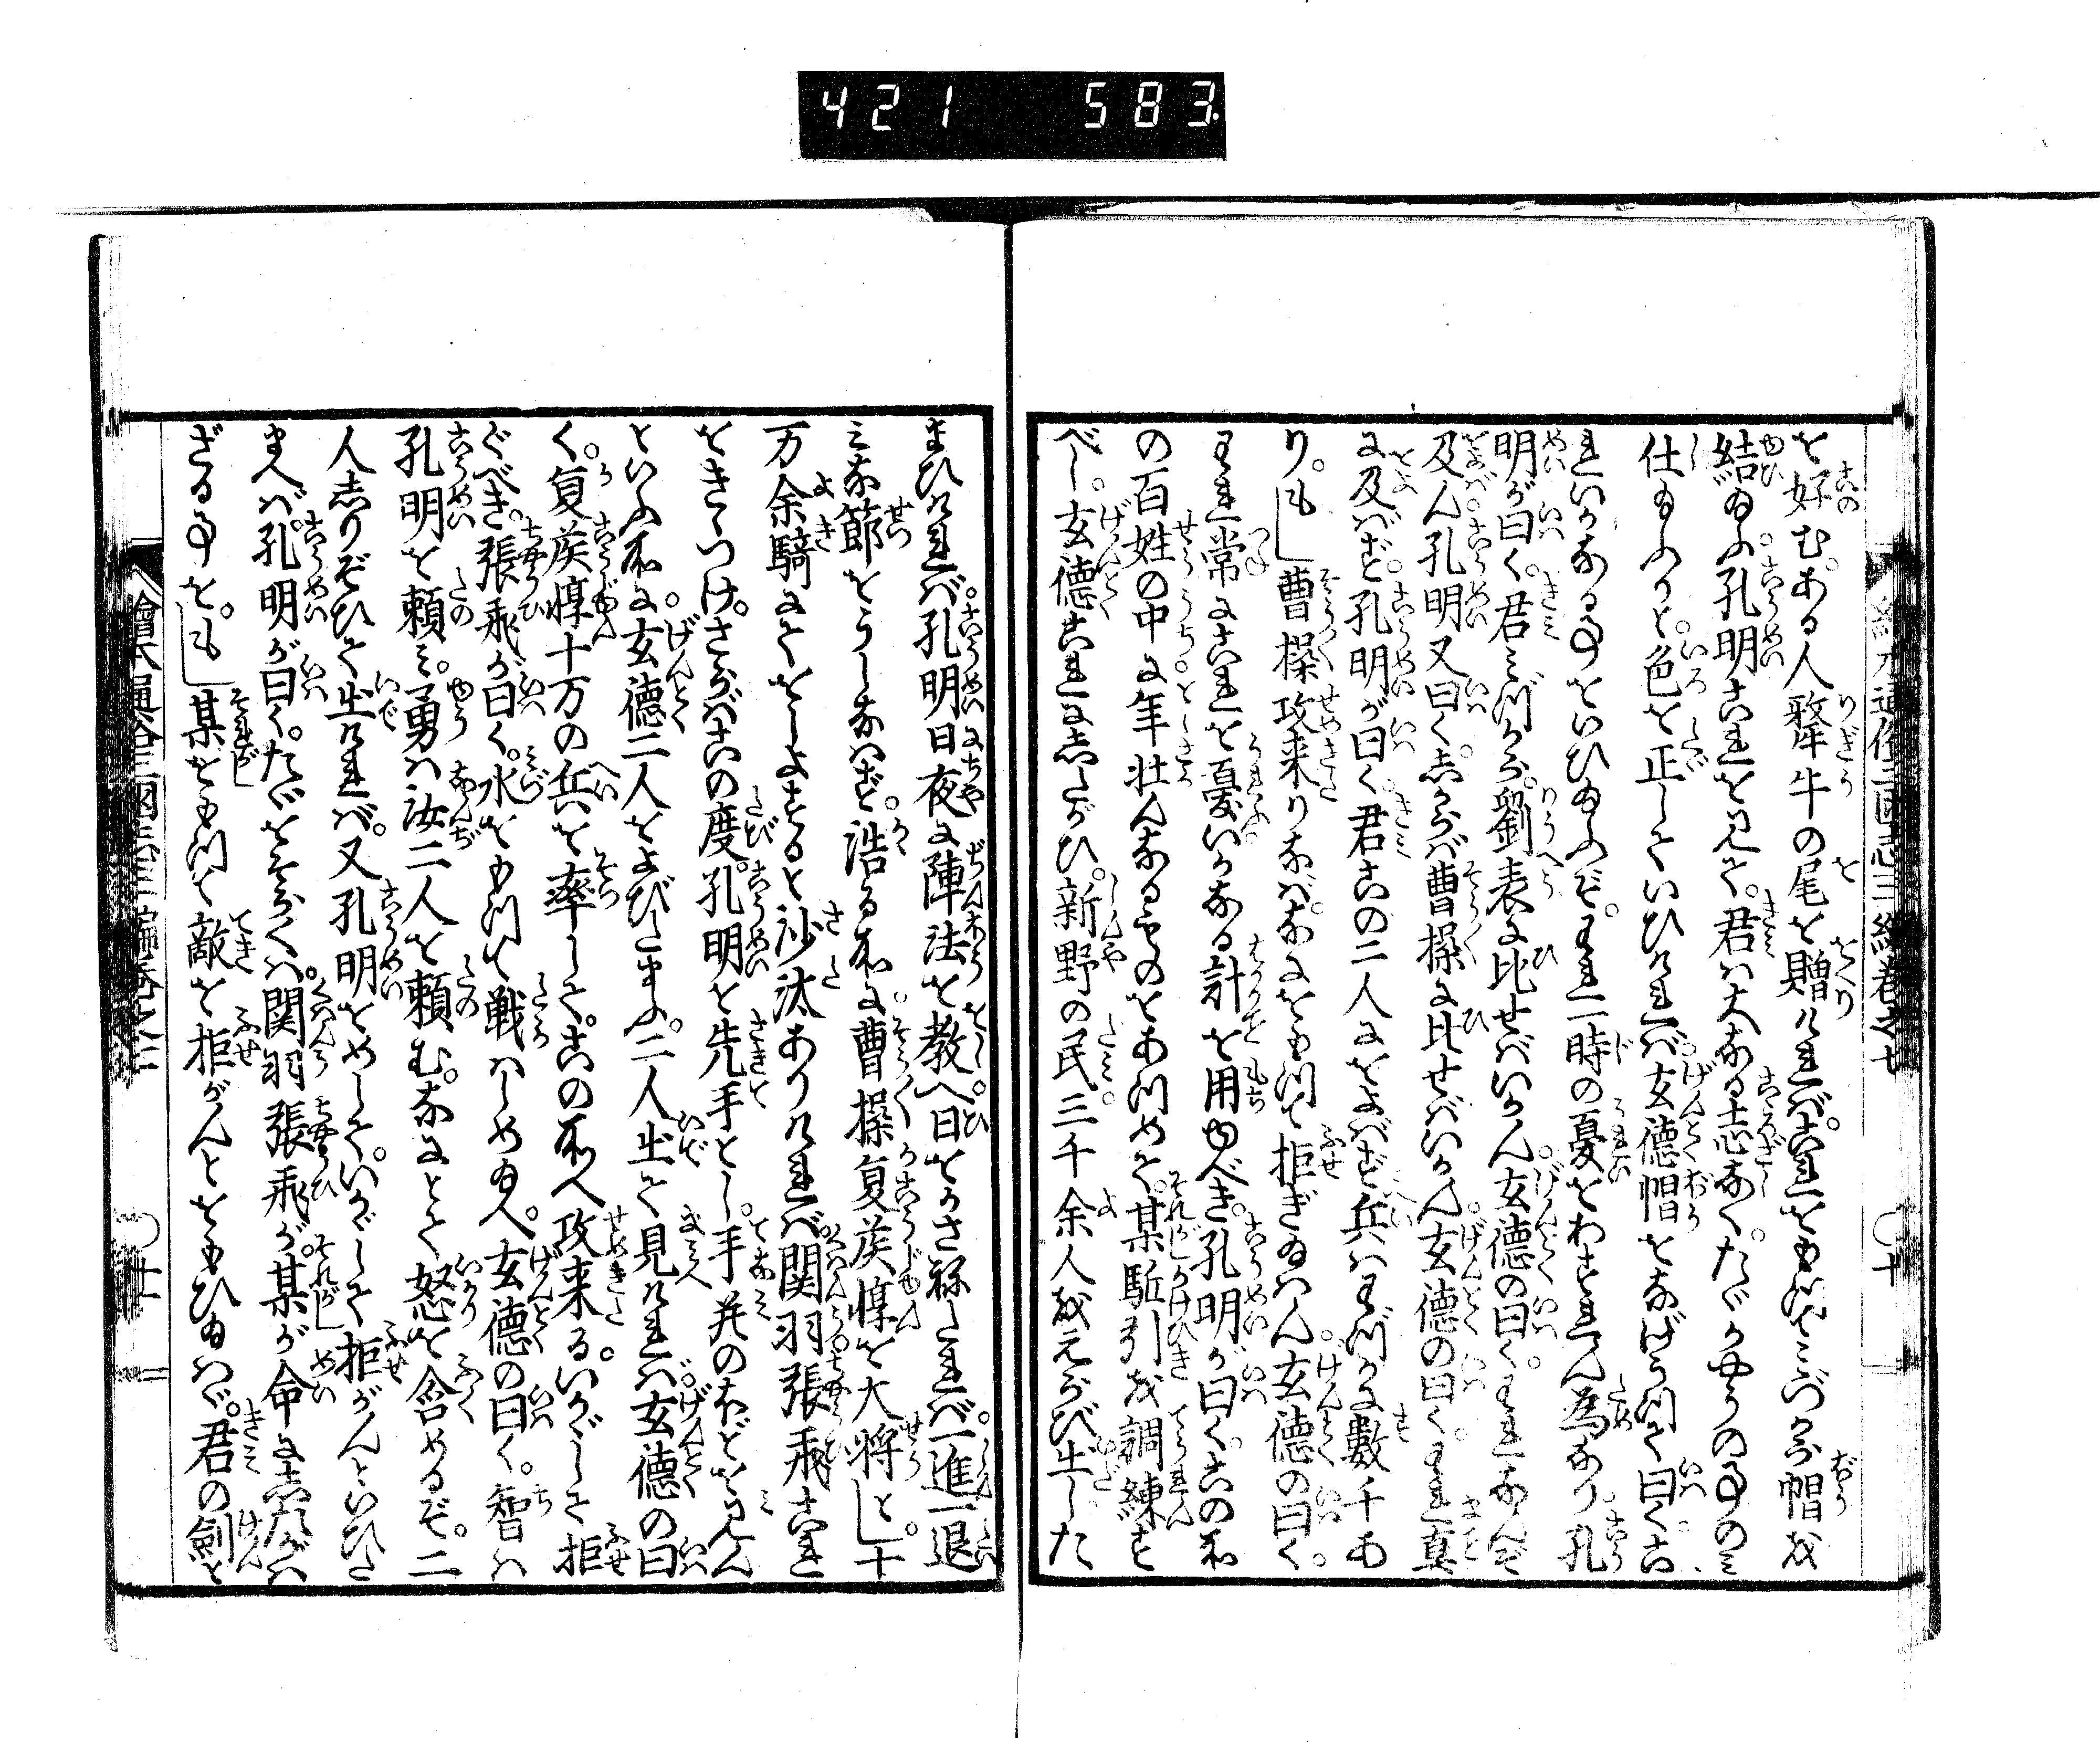 421 583
を好む。ある人犛牛の尾を贈ければ。これをもつてみづから帽を
結ゐふ。孔明これを見て。君は大なる志なく。たゞかやうの事のミ
仕ゐふかと。色を正しくいひければ。玄徳帽をなげうつて曰くこ
れいかなる事をいひゐふぞ。われ一時の憂をわすれん為なり。孔
明が曰く。君ミづから。劉表に比せばいかん。玄徳の曰く。われおよバず
及ん孔明又曰く。しからバ曹操に比せばいかん。玄徳の曰く。われ真
に及バず。孔明が曰く。君この二人におよばず兵はわづかに数千あ
り。もし曹操攻来りなば。なにをもつて拒ぎゐはん。玄徳の曰く。
われ常にこれを憂。いかなる計を用ゆべき。孔明が曰く。この所
の百姓の中に年壮んなるものをあつめて。某駈引を調練す
べし。玄徳これにしたがひ。新野の民三千余人をえらび出した
まひければ。孔明日夜に陣法を教へ日をかさねたれば。一進一退
ミな節をうしなはず。浩る所に。曹操夏侯惇を大将とし。十
万余騎にておしよすると沙汰ありければ。関羽張飛これ
をきゝつけ。さらばこの度。孔明を先手とし。手並のほどを見ん
といふ所に。玄徳二人をよびたまふ。二人出て見ければ。玄徳の曰
く。夏侯惇十万の兵を率して。この所へ攻来る。いかゞして拒
ぐべき。張飛が曰く。水をもつて戦はしめゐへ。玄徳の曰く。智は
孔明を頼ミ。勇は汝二人を頼む。なにとて怒を含めるぞ。二
人しりぞひて出ければ。又孔明をめして。いかゞして拒がんといひた
まへば。孔明が曰く。たゞをそらくは。関羽張飛が。某が命にしたがは
ざる事を。もし某をもつて敵を拒がんとをもひゐはゞ。君の剣と
繪本通俗三國志三編巻之七
十